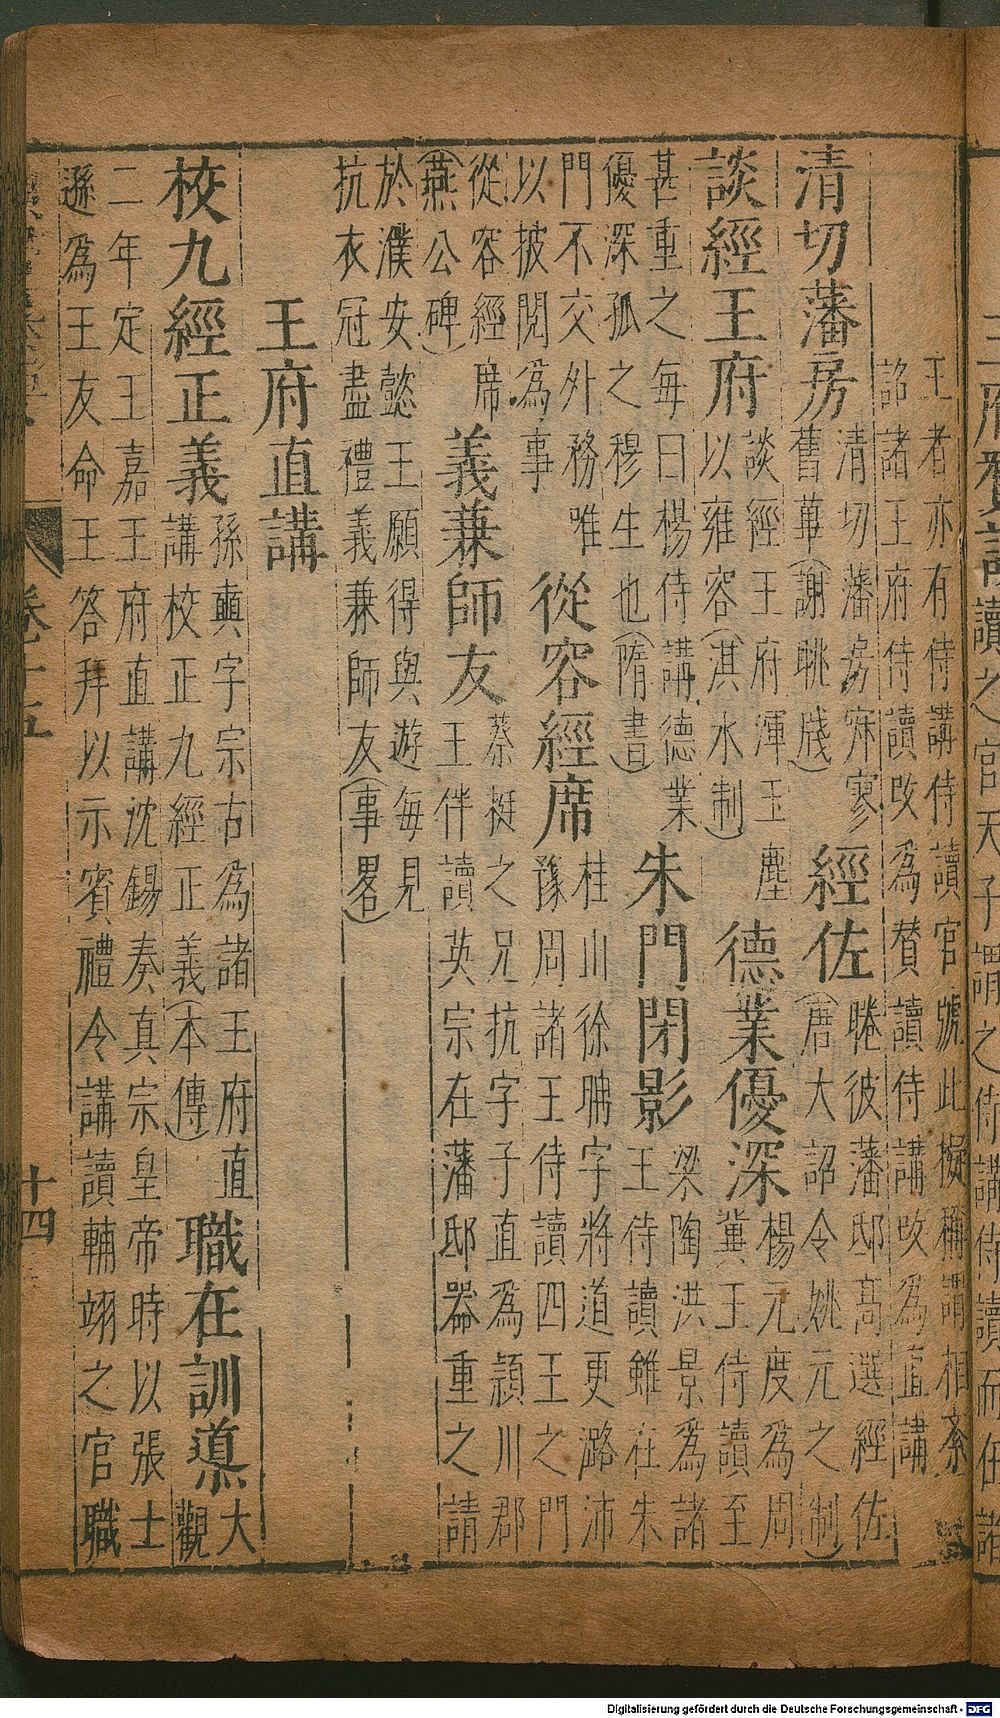 王者亦有侍講侍讀官號此擬稱謂相紊
詔諸王府侍讀改爲賛讀侍講改爲直講
清切藩房
清切藩房寂寥
舊蓽(謝眺牋)
經佐
睠彼藩邸高選經佐
(唐大詔令姚元之制)
談經王府
談經王府渾玉塵
以雍容(淇水制)
德業優深
楊元度爲周
冀王侍讀至
甚重之每曰楊侍講德業
優深孤之穆生也(隋書)
朱門閉影
梁陶洪景爲諸
王侍讀雖在朱
門不交外務唯
以披閱爲事
從容經席
桂山徐𦕈字將道更潞沛
豫周諸王侍讀四王之門
從容經席
(燕公碑)
義兼師友
蔡挺之兄抗字子直爲潁川郡
王伴讀英宗在藩邸器重之請
於濮安懿王願得與遊每見
抗衣冠盡禮義兼師友(事畧)
王府直講
校九經正義
孫奭字宗古爲諸王府直
講校正九經正義(本傳)
職在訓導
大觀
二年定王嘉王府直講沈錫奏真宗皇帝時以張士
遜爲王友命王答拜以示賓禮令講讀輔翊之官職
卷十五
十四
Digitalisierung gefördert durch die Deutsche Forschungsgemeinschaft - DFG